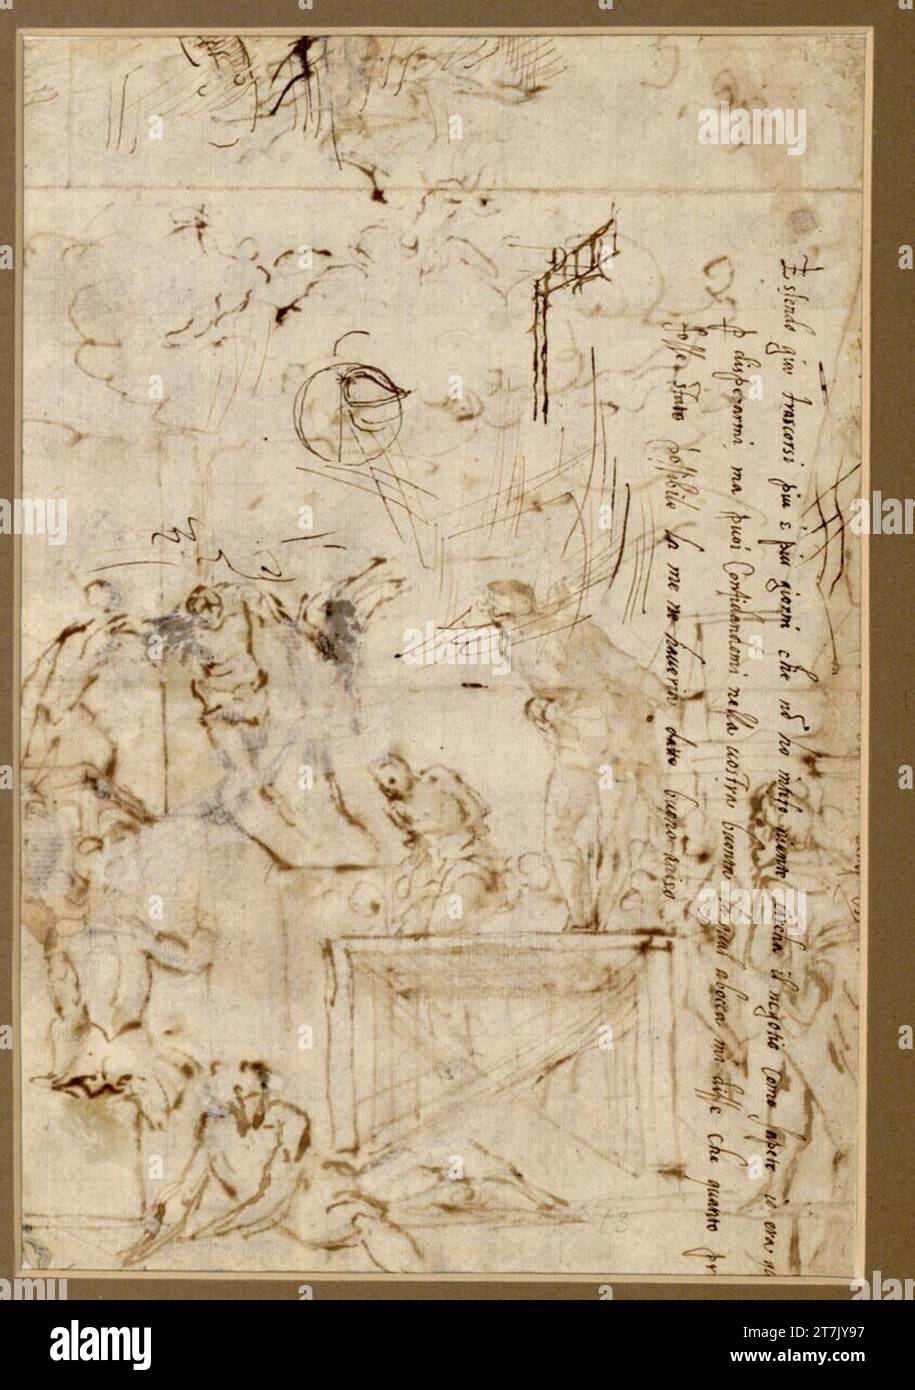 Essendo gia trascorsi piu e piu giorni che nõ ho inteso niente circha il negotio Como sapete io era
disperarmi, ma puoi Confidandomi nella vostra buontà la qual a bocca mi disse che quanto pr
fosse stato possibile la me ne haveria dato buono aviso
13
alamy
Image ID: 2T7JY97
www.alamy.com